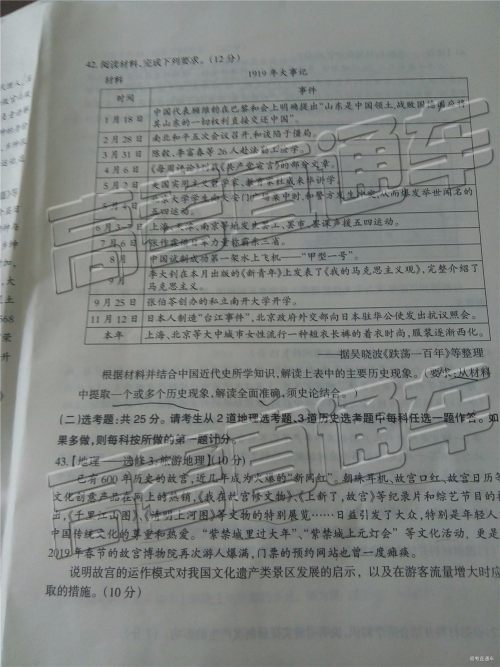 42. 阅读材料，完成下列要求。（12分）
材料 1919年大事记
时间 事件
1月18日 中国代表顾维钧在巴黎和会上明确提出“山东是中国领土，战败国德国应将
其山东的一切权利直接交还中国”。
2月28日 南北和平五次会议召开，和谈陷于僵局。
3月31日 陈毅、李富春等26人赴法勤工俭学。
4月6日 《每周评论》刊载《共产党宣言》的部分章节。
5月2日 美国实用主义哲学家、教育家杜威来华讲学。
5月4日 北京大学学生向天安门广场集中时，和警方发生冲突，从而爆发举世闻名的
五四运动。
6月3-7日 上海、天津、南京等地发生罢工、罢市、罢课声援五四运动。
7月6日 张作霖
8月 中国试制成功第一架水上飞机——“甲型一号”。
9月 李大钊在本月出版的《新青年》上发表了《我的马克思主义观》，完整介绍了
马克思主义。
9月25日 张伯苓创办的私立南开大学开学。
11月12日 日本人制造“台江事件”，北京政府外交部向日本驻华公使发出抗议照会。
本年 上海、北京等大中城市女性流行一种短衣长裤的着衣时尚，服装逐渐西化。
——据吴晓波《跌荡一百年》等整理
根据材料并结合中国近代史所学知识，解读上表中的主要历史现象。（要求：从材料
中提取一个或多个历史现象，解读全面准确，须史论结合。
（二）选考题：共25分。请考生从2道地理选考题、3道历史选考题中每科任选一题作答。如
果多做，则每科按所做的第一题计分。
43.【地理——选修3：旅游地理】（10分）
已有600年历史的故宫，近几年成为火爆的“新网红”。朝珠耳机、故宫口红、故宫日历等
文化创意产品在网上的热销，《我在故宫修文物》、《上新了，故宫》等纪录片和综艺节目的
出，《千里江山图》、《清明上河图》等文物的特别展览……日益引发了大众，特别是年轻人
中国传统文化的尊重和热爱。“紫禁城里过大年”、“紫禁城上元灯会”等文化活动，更是
2019年春节的故宫博物院再次游人爆满，门票的预约网站也曾一度瘫痪。
说明故宫的运作模式对我国文化遗产类景区发展的启示，以及在游客流量增大时应
取的措施。（10分）
高考直通车
高考直通车